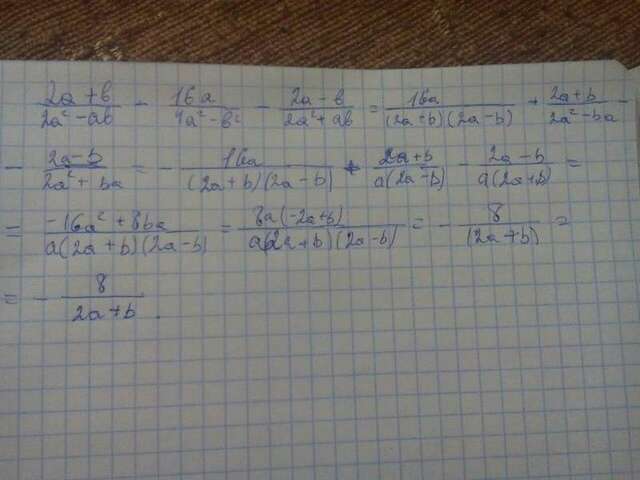 (2a+b)/(2a²-ab) - 16a/(4a²-b²) - (2a-b)/(2a²+ab) = 16a/((2a+b)(2a-b)) + (2a+b)/(2a²-ba) -
- (2a-b)/(2a²+ba) = - 16a/((2a+b)(2a-b)) + (2a+b)/(a(2a-b)) - (2a-b)/(a(2a+b)) =
= (-16a²+8ba)/(a(2a+b)(2a-b)) = 8a(-2a+b)/(a(2a+b)(2a-b)) = - 8/((2a+b)) =
= - 8/(2a+b).